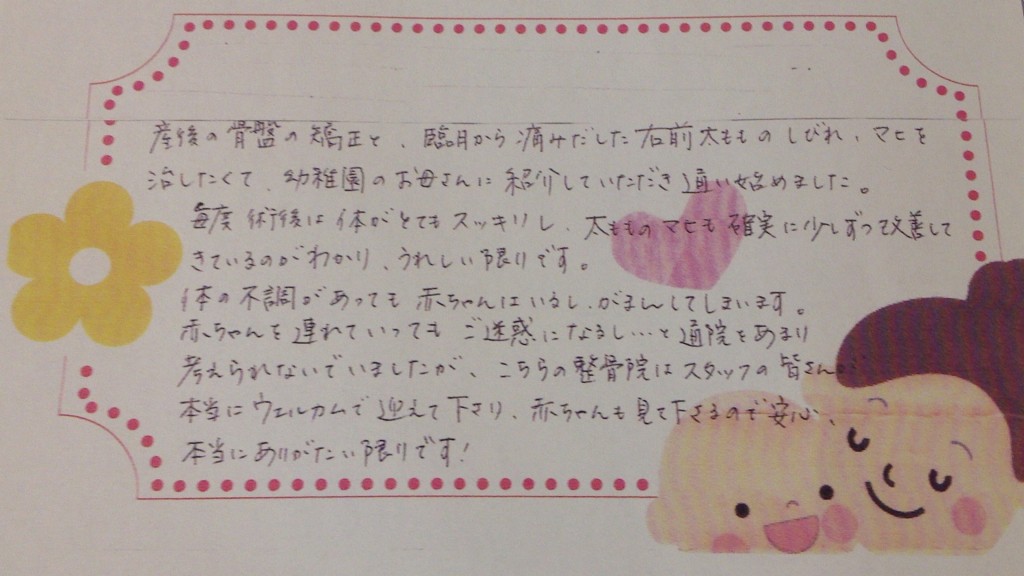 産後の骨盤の矯正と、臨月から痛みだした右前太もものしびれ、マヒを
治したくて、幼稚園のお母さんに紹介していただき通い始めました。
毎度術後は体がとてもスッキリし、太もものマヒも確実に少しずつ改善して
きているのがわかり、うれしい限りです。
体の不調があっても赤ちゃんはいるし、がまんしてしまいます。
赤ちゃんを連れていってもご迷惑になるし…と通院をあまり
考えられないでいましたが、こちらの整骨院はスタッフの皆さんが
本当にウェルカムで迎えて下さり、赤ちゃんも見て下さるので安心、
本当にありがたい限りです!